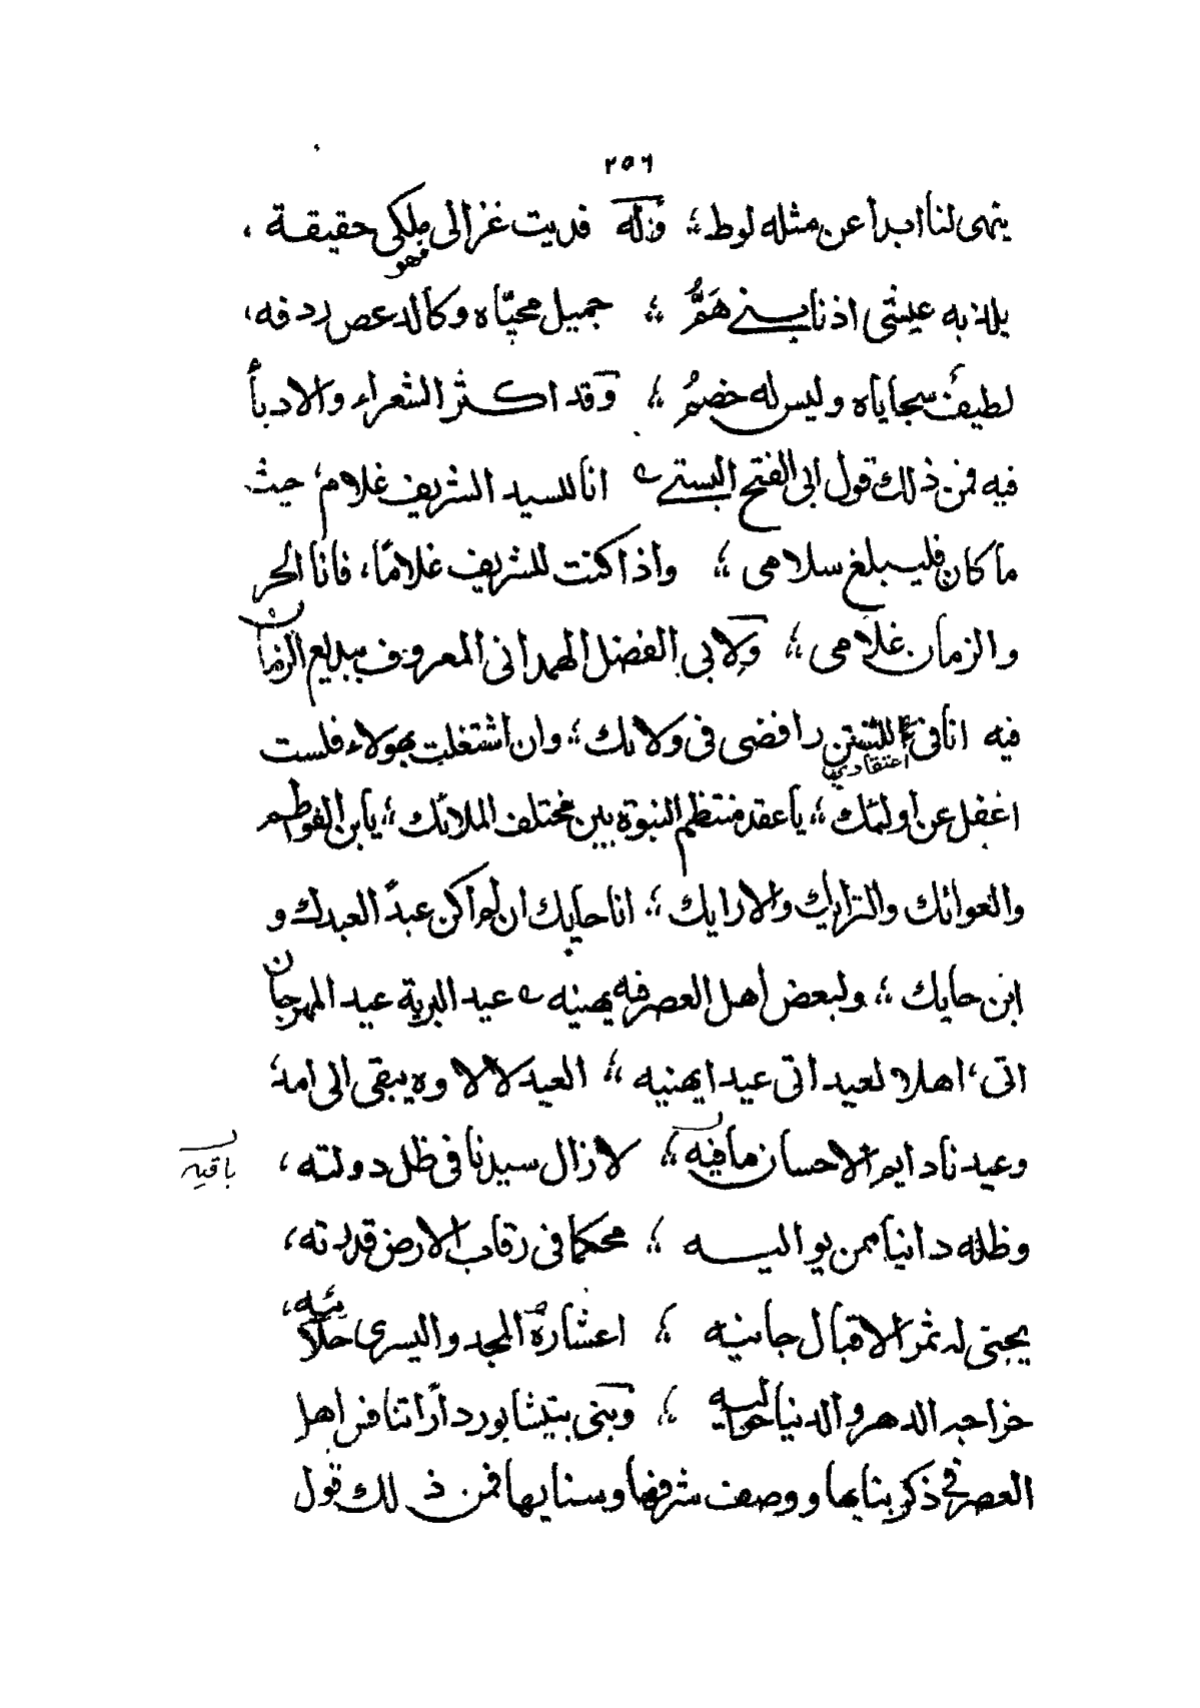 ٢٥٦
ينهى لنا ابدا عن مثله لوط ؛ وله فديت غزالى ملكى حقيقة ،
فهو
يلذ به عيشى اذ نابنى هَمُّ ؛ جميل محيّاه وكالدعص ردفه ،
لطيف سجاياه وليس له خصمُ ؛ وقد اكثر الشعراء والادبأ
فيه فمن ذلك قول ابى الفتح البستى انا للسيد الشريف غلام ، حيث
ما كان فليبلغ سلامى ؛ واذا كنت للشريف غلامًا ، فانا الحر
والزمان غلامى ؛ ولابى الفضل الهمدانى المعروف ببديع الزمان
فيه انا فى اعتقادي للتسنن رافضى فى ولائك ؛ وان اشتغلت بهولاء فلست
اغفل عن اولئك ؛ يا عقد منتظم النبوة بين مختلف الملائك ؛ يابن الفواطم
والعواتك والترايك والارايك ؛ انا حايك ان لم اكن عبدً العبدك و
ابن حايك ؛ ولبعض اهل العصر فيه يهنيه عيد البرية عيد المهرجان
اتى ، اهلا لعيد اتى عيدا يهنيه ؛ العيد لالاوه يبقى الى امد ؛
وعيدنا دايم الاحسان ما فيه ؛ لازال سيدنا فى ظل دولته ،
باقيه
وظله دانيا ممن يواليـه ؛ محكما فى رقاب الارض قدرته ،
يجتنى له ثمر الاقبال جانيه ؛ اعشاره المجد واليسرى حلائبه ،
خراجه الدهر والدنيا حواليه ؛ وبنى بنيشابور دارًا تنافس اهل
العصر فى ذكر بنايها ووصف شرفها وسنايها فمن ذلك قول